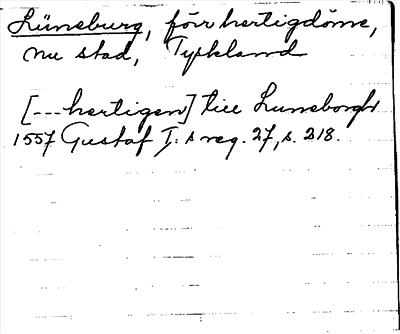 Lüneburg, förr hertigdöme,
nu stad, Tyskland
[---hertigen] till Luneborgh
1557 Gustaf I:s reg. 27, s. 218.